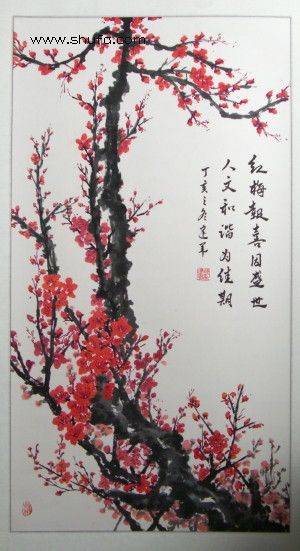 www.shufa.com
红梅报喜因盛世
人文和谐为佳期
丁亥之冬建军